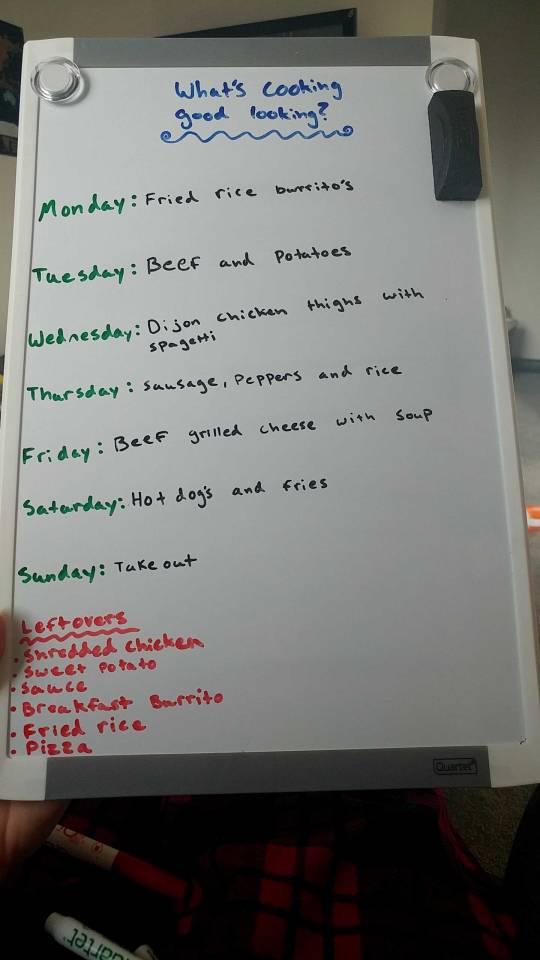 What's cooking
good looking?
Monday: Fried rice burrito's
Tuesday: Beef and potatoes
Wednesday: Dijon chicken thighs with
spagetti
Thursday: sausage, Peppers and rice
Friday: Beef grilled cheese with soup
Saturday: Hot dog's and fries
Sunday: Take out
Leftovers
• Shredded Chicken
• Sweet Potato
• Sauce
• Breakfast Burrito
• Fried rice
• Pizza
Quartet
Quartet